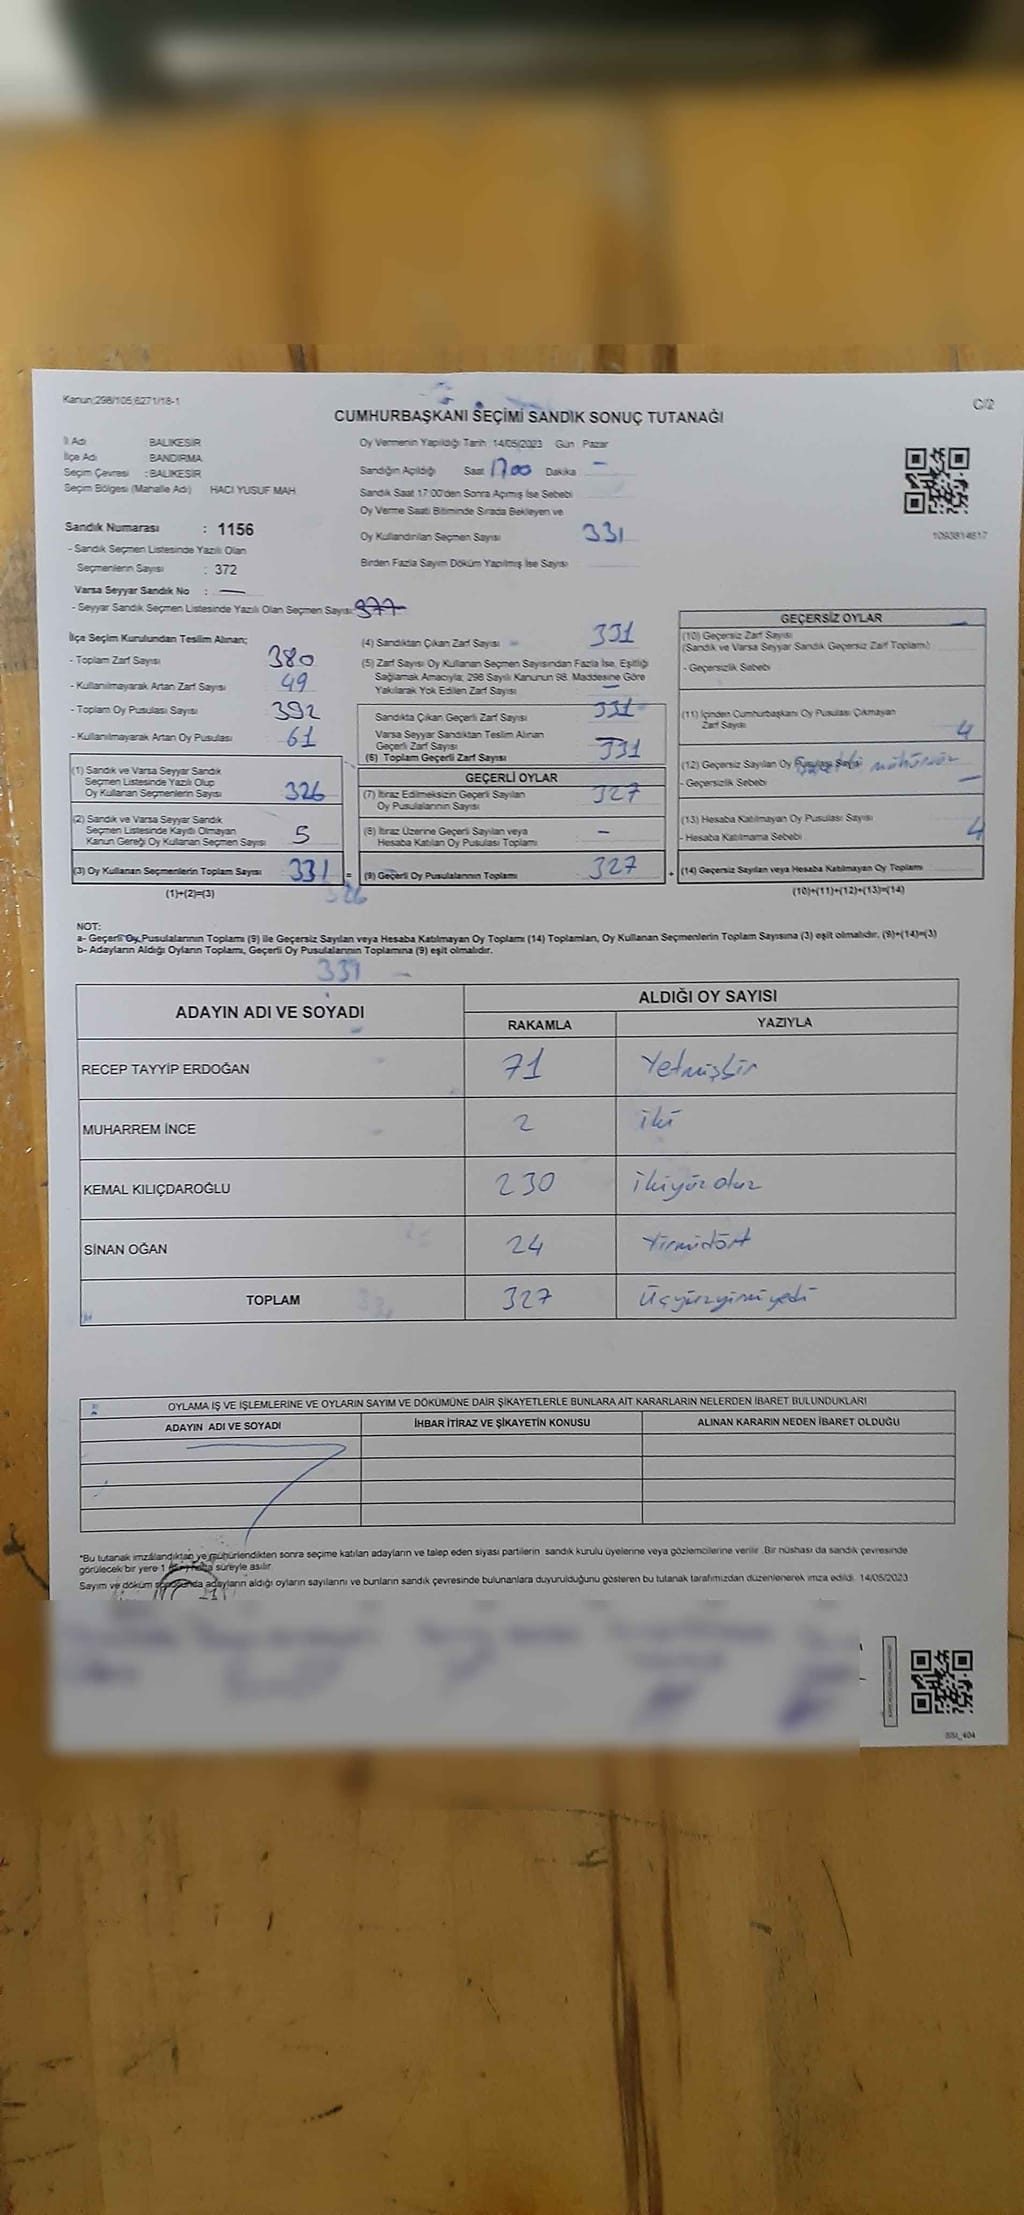 Kanun:298/105,6271/18-1
C/2
CUMHURBAŞKANI SEÇİMİ SANDIK SONUÇ TUTANAĞI
İl Adı : BALIKESİR
İlçe Adı : BANDIRMA
Seçim Çevresi : BALIKESİR
Seçim Bölgesi (Mahalle Adı) : HACI YUSUF MAH
Sandık Numarası : 1156
- Sandık Seçmen Listesinde Yazılı Olan
Seçmenlerin Sayısı : 372
Varsa Seyyar Sandık No : —
- Seyyar Sandık Seçmen Listesinde Yazılı Olan Seçmen Sayısı:
Oy Vermenin Yapıldığı Tarih: 14/05/2023 Gün Pazar
Sandığın Açıldığı Saat 1700 Dakika —
Sandık Saat 17:00'den Sonra Açımış İse Sebebi
Oy Verme Saati Bitiminde Sırada Bekleyen ve
Oy Kullandırılan Seçmen Sayısı 331
Birden Fazla Sayım Döküm Yapılmış İse Sayısı
1093814617
İlçe Seçim Kurulundan Teslim Alınan;
- Toplam Zarf Sayısı 380
- Kullanılmayarak Artan Zarf Sayısı 49
- Toplam Oy Pusulası Sayısı 392
- Kullanılmayarak Artan Oy Pusulası 61
(1) Sandık ve Varsa Seyyar Sandık
Seçmen Listesinde Yazılı Olup
Oy Kullanan Seçmenlerin Sayısı 326
(2) Sandık ve Varsa Seyyar Sandık
Seçmen Listesinde Kaydı Olmayan
Kanun Gereği Oy Kullanan Seçmen Sayısı 5
(3) Oy Kullanan Seçmenlerin Toplam Sayısı 331 =
(1)+(2)=(3)
326
(4) Sandıktan Çıkan Zarf Sayısı 331
(5) Zarf Sayısı Oy Kullanan Seçmen Sayısından Fazla İse, Eşitliği
Sağlamak Amacıyla; 298 Sayılı Kanunun 98. Maddesine Göre
Yakılarak Yok Edilen Zarf Sayısı —
Sandıkta Çıkan Geçerli Zarf Sayısı 331
Varsa Seyyar Sandıktan Teslim Alınan
Geçerli Zarf Sayısı —
(6) Toplam Geçerli Zarf Sayısı 331
GEÇERLİ OYLAR
(7) İtiraz Edilmeksizin Geçerli Sayılan
Oy Pusulalarının Sayısı 327
(8) İtiraz Üzerine Geçerli Sayılan veya
Hesaba Katılan Oy Pusulası Toplamı —
(9) Geçerli Oy Pusulalarının Toplamı 327 +
GEÇERSİZ OYLAR
(10) Geçersiz Zarf Sayısı —
(Sandık ve Varsa Seyyar Sandık Geçersiz Zarf Toplamı)
- Geçersizlik Sebebi
(11) İçinden Cumhurbaşkanı Oy Pusulası Çıkmayan
Zarf Sayısı
4
(12) Geçersiz Sayılan Oy Pusulası Sayısı
- Geçersizlik Sebebi mühürsüz
—
(13) Hesaba Katılmayan Oy Pusulası Sayısı
- Hesaba Katılmama Sebebi
4
(14) Geçersiz Sayılan veya Hesaba Katılmayan Oy Toplamı
(10)+(11)+(12)+(13)=(14)
NOT:
a- Geçerli Oy Pusulalarının Toplamı (9) ile Geçersiz Sayılan veya Hesaba Katılmayan Oy Toplamı (14) Toplamları, Oy Kullanan Seçmenlerin Toplam Sayısına (3) eşit olmalıdır. (9)+(14)=(3)
b- Adayların Aldığı Oyların Toplamı, Geçerli Oy Pusulalarının Toplamına (9) eşit olmalıdır.
331 —
ADAYIN ADI VE SOYADI ALDIĞI OY SAYISI
RAKAMLA YAZIYLA
RECEP TAYYİP ERDOĞAN 71 Yetmişbir
MUHARREM İNCE 2 iki
KEMAL KILIÇDAROĞLU 230 ikiyüzotuz
SİNAN OĞAN 24 Yirmidört
TOPLAM 327 Üçyüzyirmiyedi
OYLAMA İŞ VE İŞLEMLERİNE VE OYLARIN SAYIM VE DÖKÜMÜNE DAİR ŞİKAYETLERLE BUNLARA AİT KARARLARIN NELERDEN İBARET BULUNDUKLARI
ADAYIN ADI VE SOYADI İHBAR İTİRAZ VE ŞİKAYETİN KONUSU ALINAN KARARIN NEDEN İBARET OLDUĞU
*Bu tutanak imzalandıktan ve mühürlendikten sonra seçime katılan adayların ve talep eden siyasi partilerin sandık kurulu üyelerine veya gözlemcilerine verilir. Bir nüshası da sandık çevresinde
görülecek bir yere 1 hafta süreyle asılır.
Sayım ve döküm sonucunda adayların aldığı oyların sayılarını ve bunların sandık çevresinde bulunanlara duyurulduğunu gösteren bu tutanak tarafımızdan düzenlenerek imza edildi. 14/05/2023